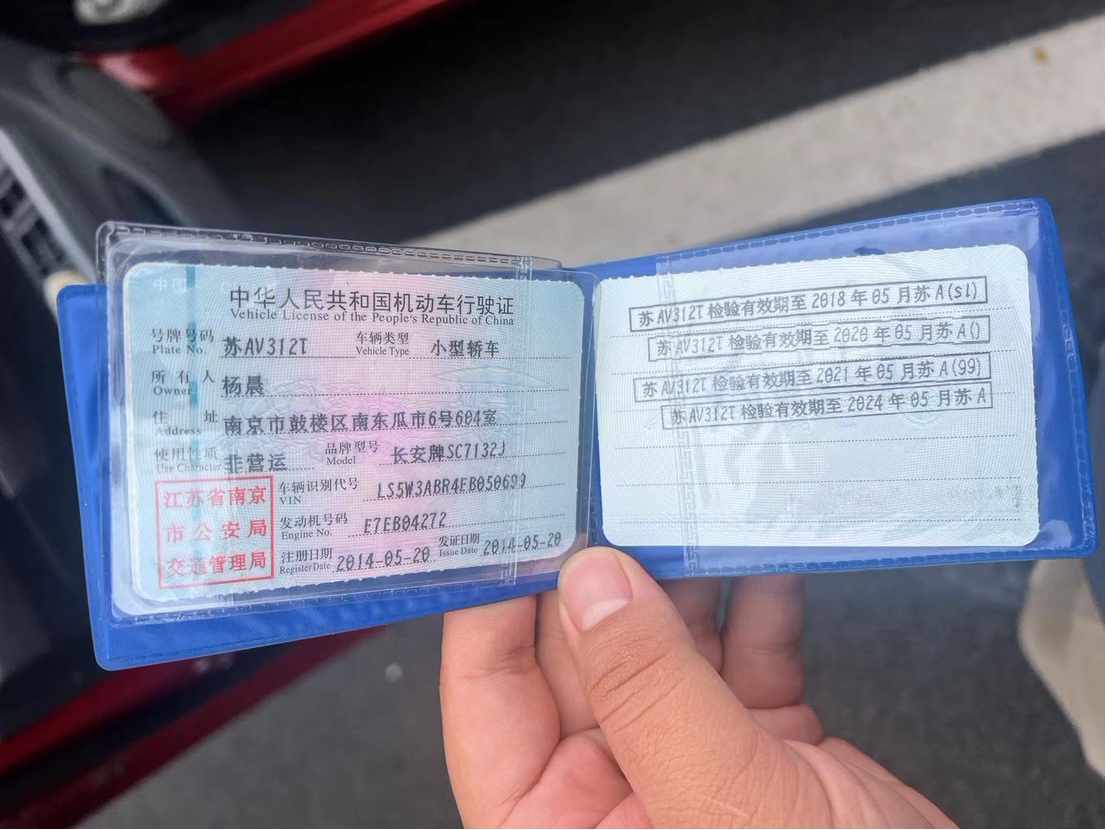 中华人民共和国机动车行驶证
Vehicle License of the People's Republic of China
号牌号码 苏AV312T 车辆类型 小型轿车
Plate No. Vehicle Type
所有人 杨晨
Owner
住址 南京市鼓楼区南东瓜市6号604室
Address
使用性质 非营运 品牌型号 长安牌SC7132J
Use Character Model
江苏省南京
市公安局
交通管理局
车辆识别代号 LS5W3ABR4EB050699
VIN
发动机号码 E7EB04272
Engine No.
注册日期 2014-05-20 发证日期 2014-05-20
Register Date Issue Date
苏AV312T 检验有效期至 2018 年 05 月苏 A(sl)
苏AV312T 检验有效期至 2020 年 05 月苏 A()
苏AV312T 检验有效期至 2021 年 05 月苏 A(99)
苏AV312T 检验有效期至 2024 年 05 月苏 A